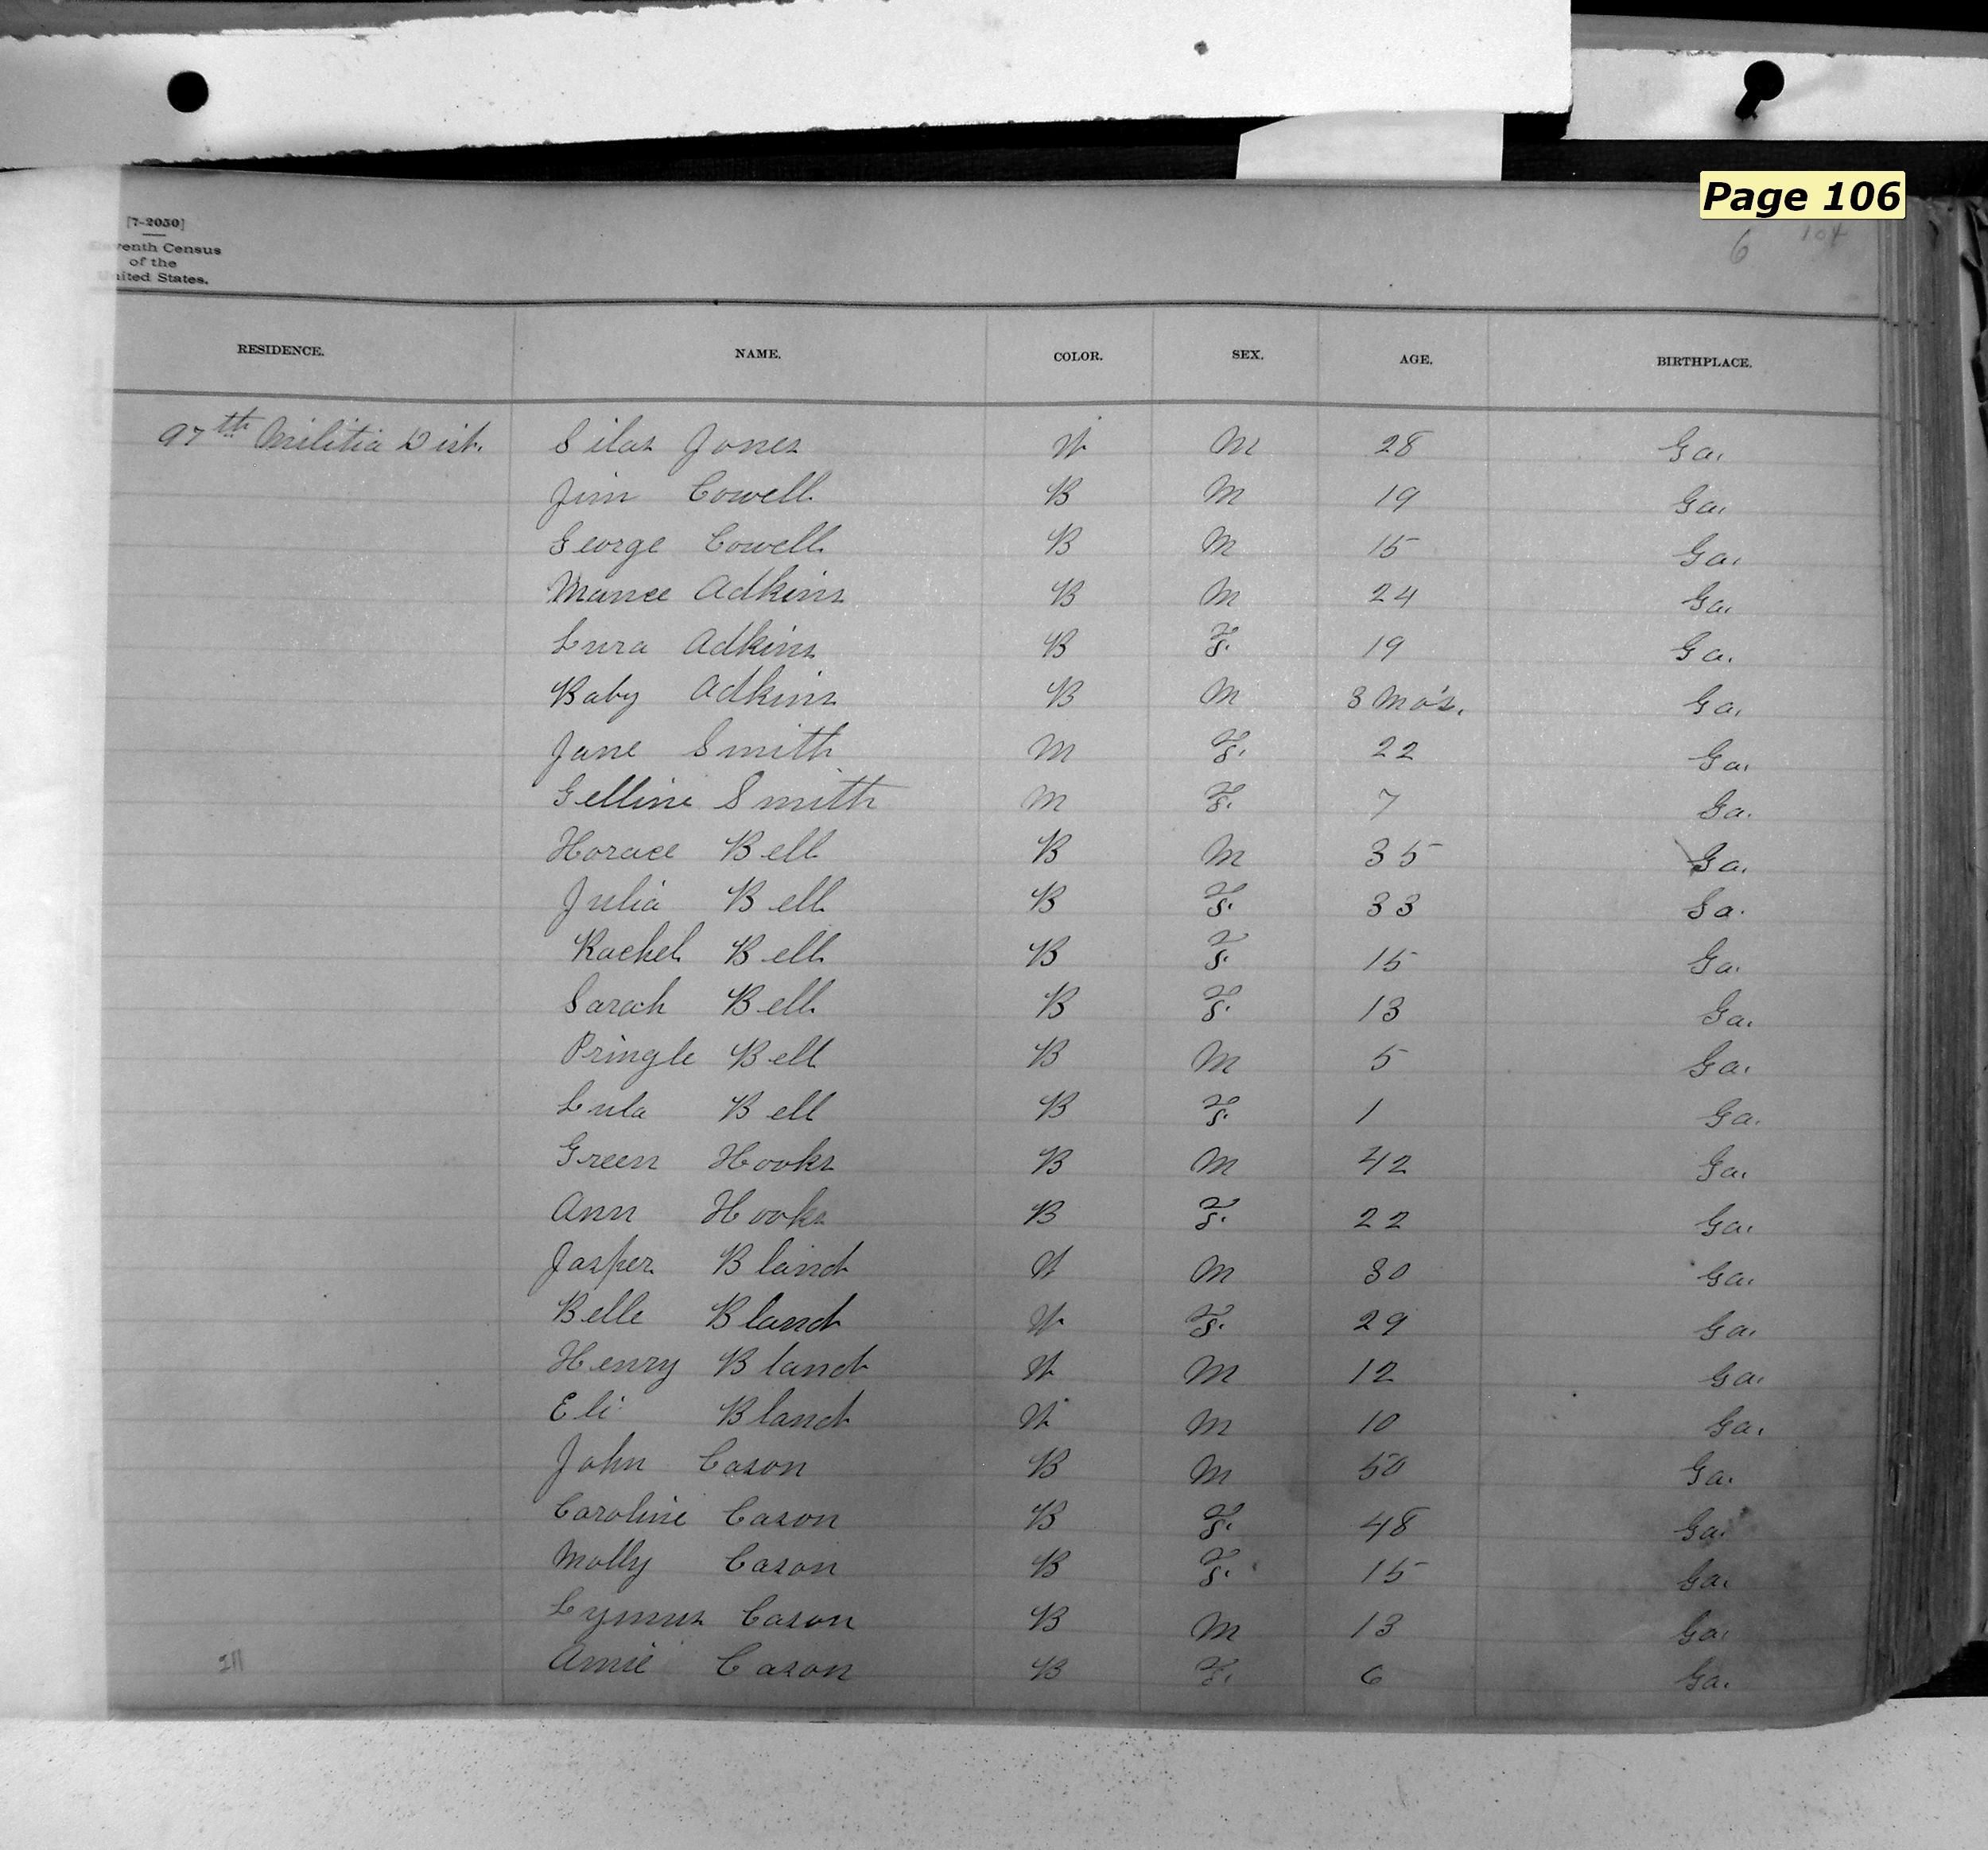 Page 106
[7-2050]
6 104
Eleventh Census
of the
United States.
RESIDENCE. NAME. COLOR. SEX. AGE. BIRTHPLACE.
97th Militia Dist. Silas Jones W M 28 Ga.
Jim Cowell B M 19 Ga.
George Cowell B M 15 Ga.
Mance Adkins B M 24 Ga.
Lura Adkins B F. 19 Ga.
Baby Adkins B M 8 Mo's. Ga.
Jane Smith M F. 22 Ga.
Gelline Smith M F. 7 Ga.
Horace Bell B M 35 Ga.
Julia Bell B F. 33 Ga.
Rachel Bell B F. 15 Ga.
Sarah Bell B F. 13 Ga.
Pringle Bell B M 5 Ga.
Lula Bell B F. 1 Ga.
Green Hooks B M 42 Ga.
Ann Hooks B F. 22 Ga.
Jasper Bland W M 30 Ga.
Belle Bland W F. 29 Ga.
Henry Bland W M 12 Ga.
Eli Bland W M 10 Ga.
John Cason B M 50 Ga.
Caroline Cason B F. 48 Ga.
Molly Cason B F. 15 Ga.
Lymus Cason B M 13 Ga.
Amie Cason B F. 6 Ga.